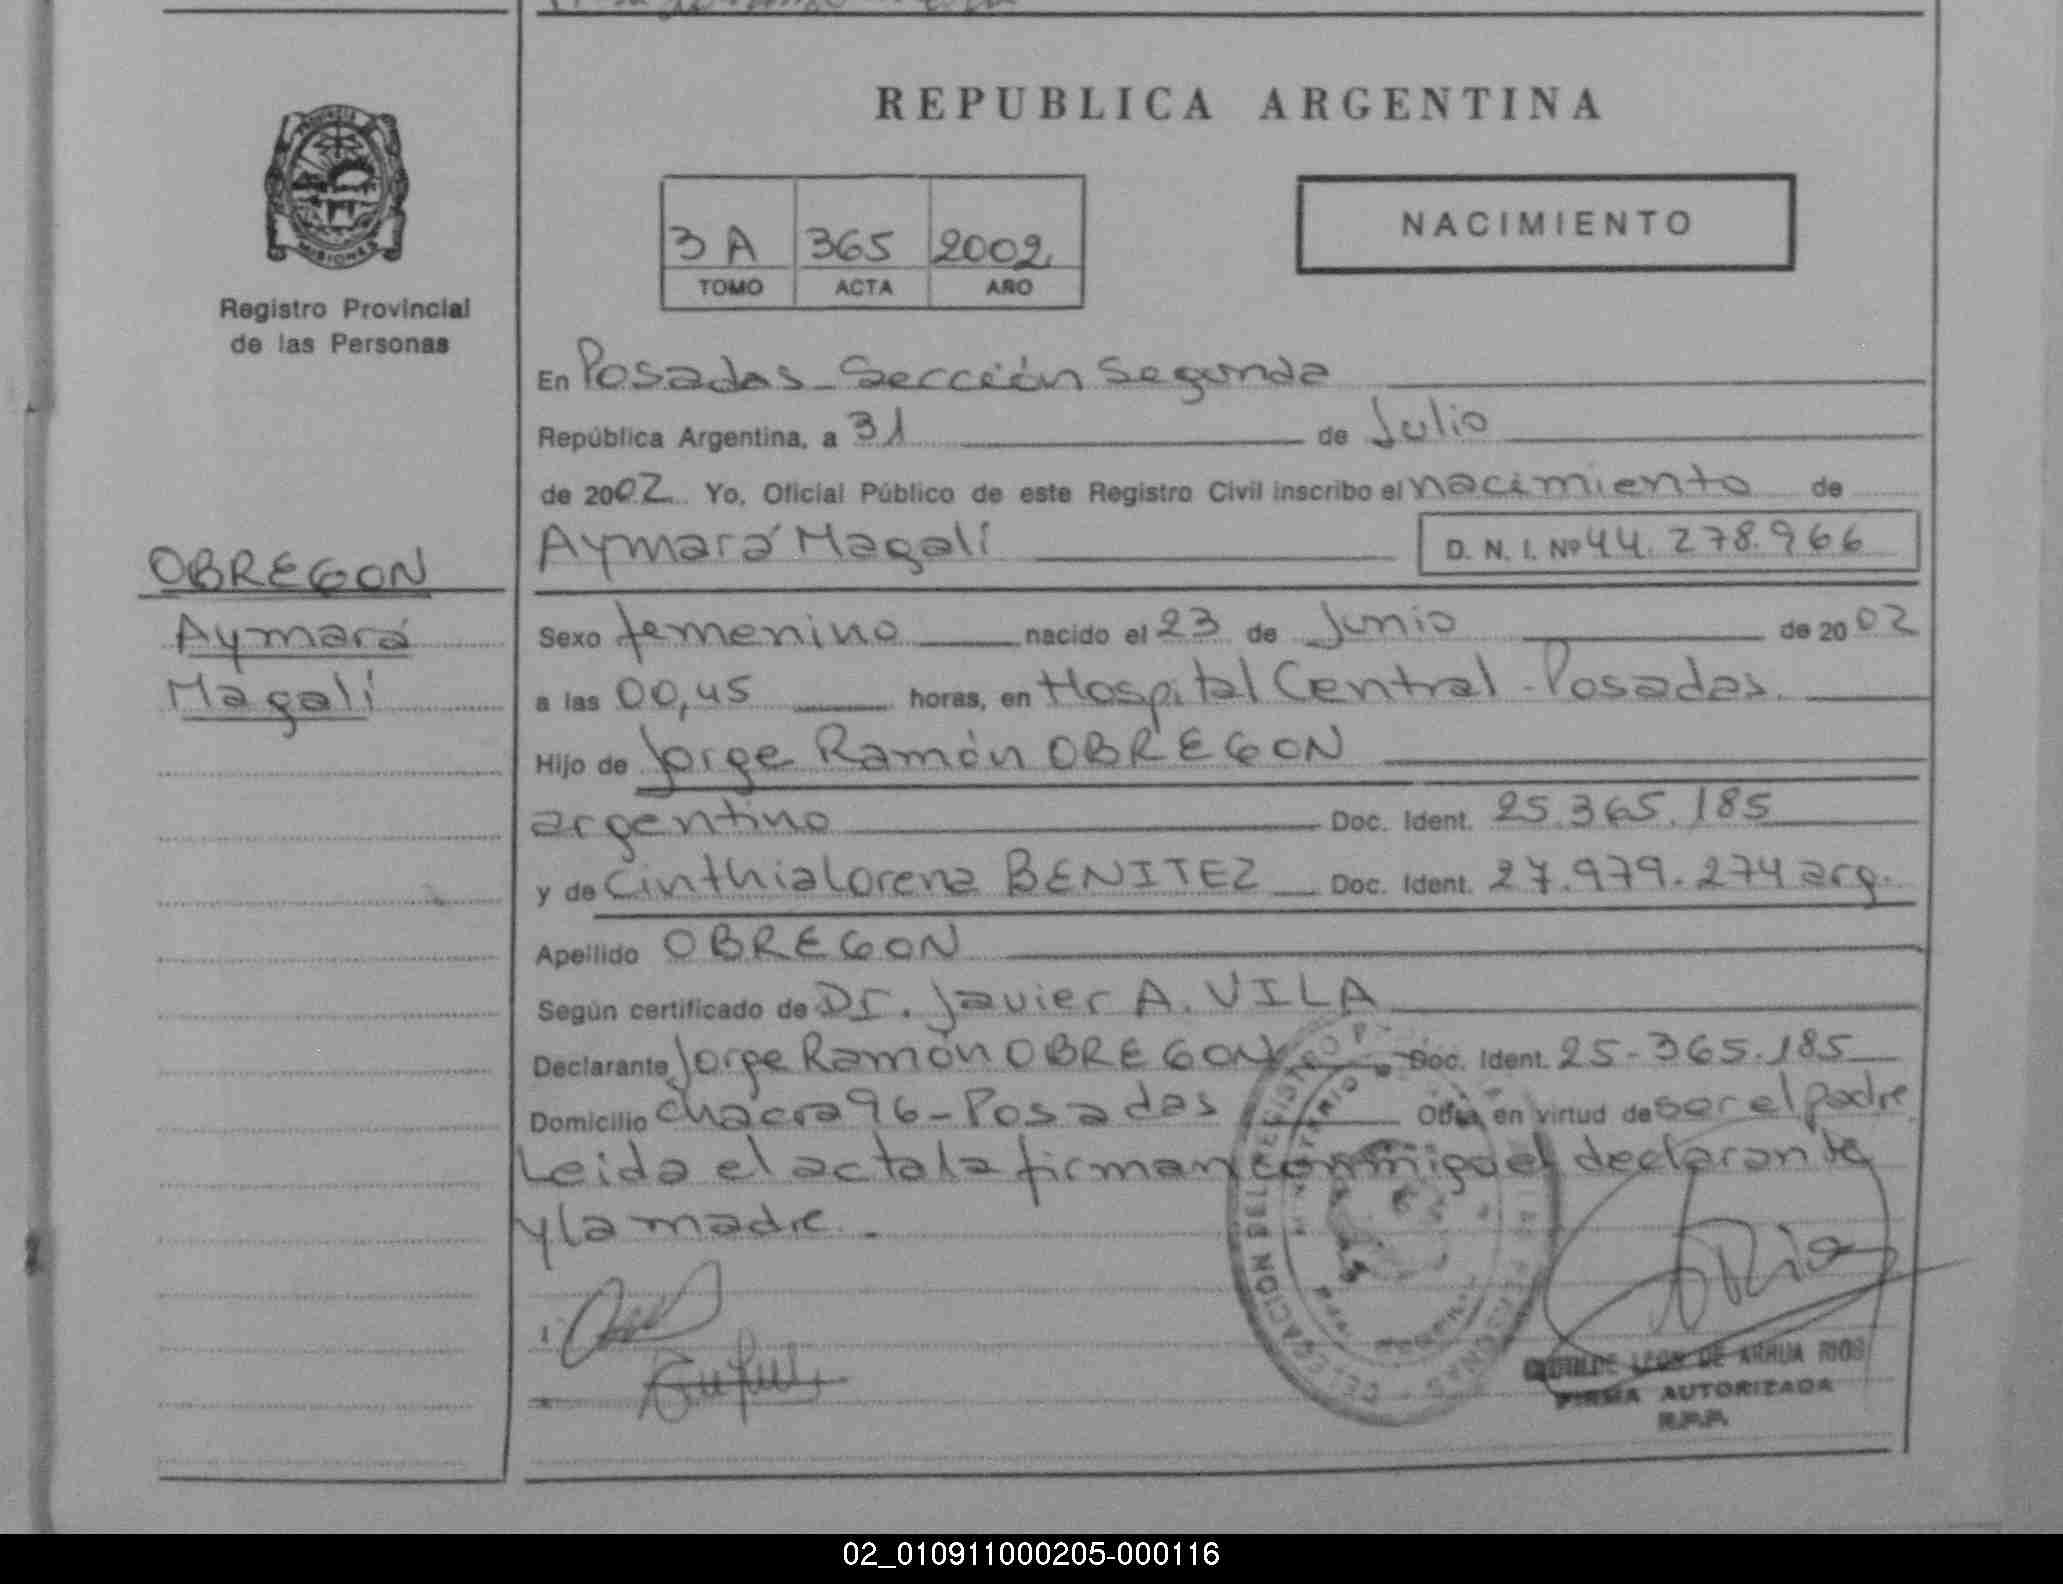 REPUBLICA ARGENTINA
PROVINCIA DE
MISIONES
Registro Provincial
de las Personas
3 A 365 2002
TOMO ACTA AÑO
NACIMIENTO
En Posadas - Sección Segunda
República Argentina, a 31 de Julio
de 2002. Yo, Oficial Público de este Registro Civil inscribo el nacimiento de
Aymará Magalí D. N. I. Nº 44.278.966
OBREGON
Aymará
Magalí
Sexo femenino nacido el 23 de Junio de 2002
a las 00,45 horas, en Hospital Central - Posadas.
Hijo de Jorge Ramón OBREGON
argentino Doc. Ident. 25.365.185
y de Cinthia Lorena BENITEZ Doc. Ident. 27.979.274 arg.
Apellido OBREGON
Según certificado de Dr. Javier A. VILA
Declarante Jorge Ramón OBREGON Doc. Ident. 25-365.185
Domicilio chacra 96 - Posadas Obra en virtud de ser el padre
Leida el acta la firman conmigo el declarante
y la madre.
DELEGACION DEL REGISTRO
PERSONAS
LEON DE ARRUA RIOS
FIRMA AUTORIZADA
R.P.P.
02_010911000205-000116